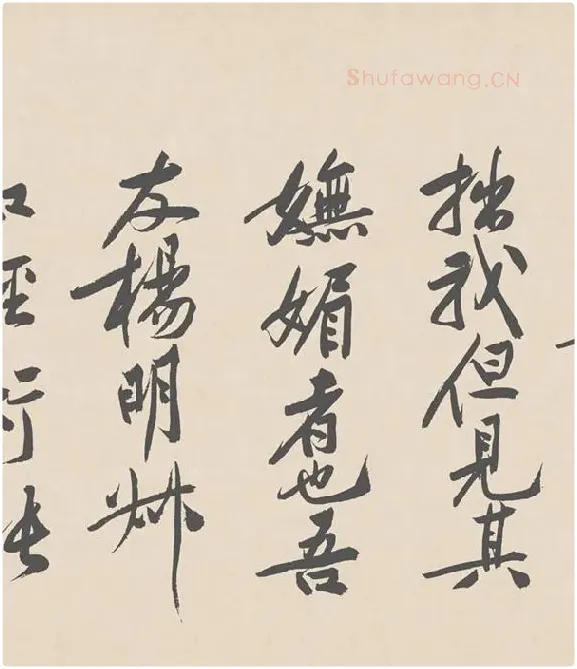 Shufawang.CN
拙我但見其
嫵媚者也吾
友楊明叔